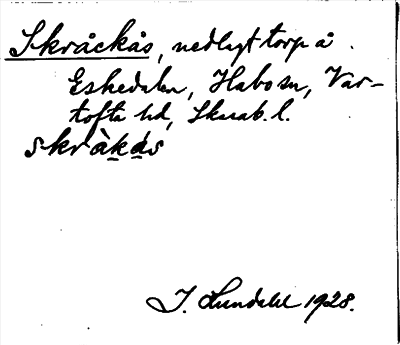 Skråckås, nedlagt torp å
Eskedalen, Habo sn, Var-
tofta hd, Skarab. l.
skràkás
J. Lundahl 1928.